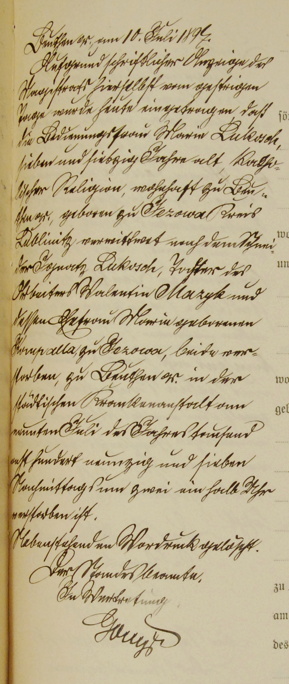 Beuthen O/S, am 10. Juli 1897.
Auf Grund schriftlicher Anzeige des
Magistrats hierselbst vom gestrigen
Tage wurde heute eingetragen, daß
die Bedienungsfrau Maria Lukosch,
sieben und siebzig Jahre alt, katho-
lischer Religion, wohnhaft zu Beu-
then O/S, geboren zu Jezowa Kreis
Lublinitz verwittwet nach dem Schnei-
der Ignatz Lukosch, Tochter des
Arbeiters Valentin Mazyk und
dessen Ehefrau Maria geborenen
zu Jezowa, beide ver-
storben, zu Beuthen O/S in der
städtischen Krankenanstalt am
neunten Juli des Jahres tausend
acht hundert neunzig und sieben
Nachmittags um zwei ein halb Uhr
verstorben ist.
Nebenstehenden Vordruck gelöscht.
Der Standesbeamte.
In Vertretung